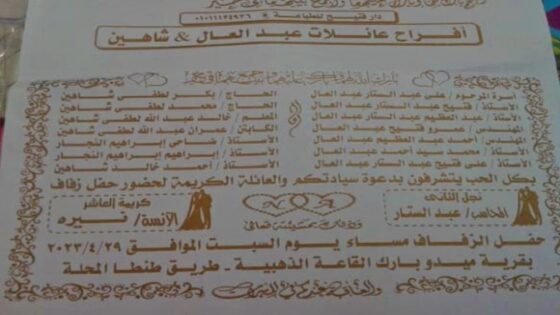 دار فتيح للطباعة ٠١٠١١٤٥٤٩٣٦
أفراح عائلات عبد العال & شاهين
أسرة المرحوم / على عبد الستار عبد العال
الأستاذ / فتيح عبد الستار عبد العال
الأستاذ / عبد العظيم عبد الستار عبد العال
المهندس / عمرو فتيح عبد العال
المهندس / أحمد عبد العظيم عبد العال
الأستاذ / محمد عبد العظيم عبد العال
الأستاذ / على فتيح عبد الستار عبد العال
و
الحاج / بكر لطفى شاهين
الحاج / محمد لطفى شاهين
المعلم / خالد عبد الله لطفى شاهين
الكابتن / عمران عبد الله لطفى شاهين
الأستاذ / ضاحى إبراهيم النجار
الأستاذ / إبراهيم إبراهيم النجار
الأستاذ / أحمد خالد شاهين
بكل الحب يتشرفون بدعوة سيادتكم والعائلة الكريمة لحضور حفل زفاف
نجل الثانى
المحاسب / عبد الستار
كريمة العاشر
الآنسة / نيره
وذلك بمشيئة الله تعالى
حفل الزفاف مساء يوم السبت الموافق ٢٠٢٣/٤/٢٩
بقرية ميدو بارك القاعة الذهبية - طريق طنطا المحلة